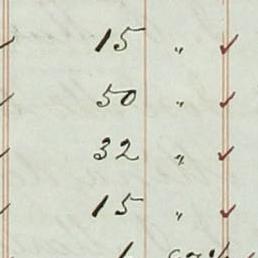 15 " ✓
50 " ✓
32 " ✓
15 " ✓